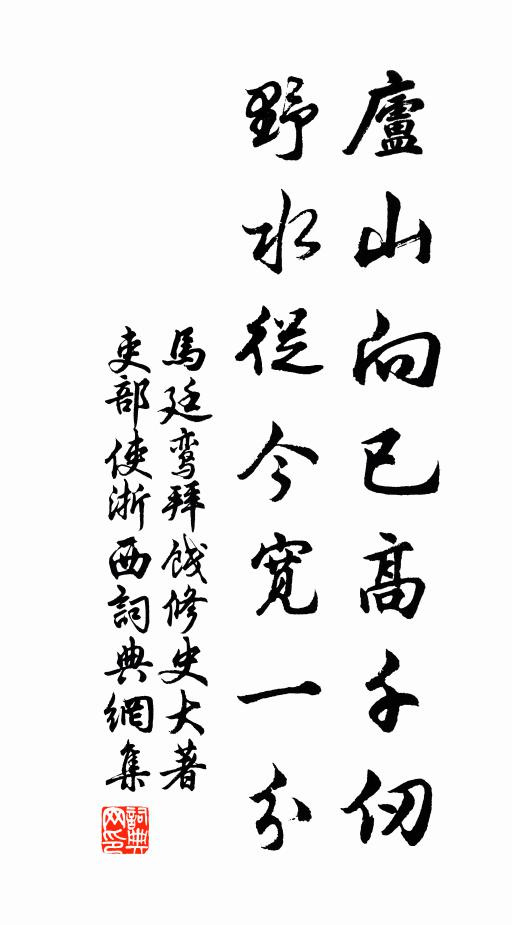 廬山向已高千仞
野水從今寬一分
馬廷鸞拜餞修史大著
吏部使浙西詞典網集
詞典网印